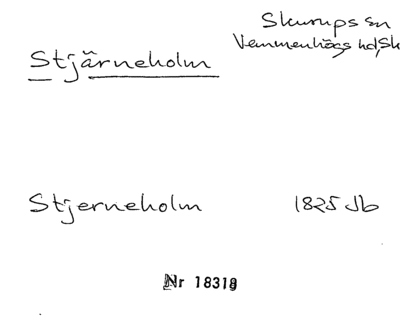 Skurups sn
Vemmenhögs hd, Sk
Stjärneholm
Stjerneholm 1825 Jb
Nr 18318